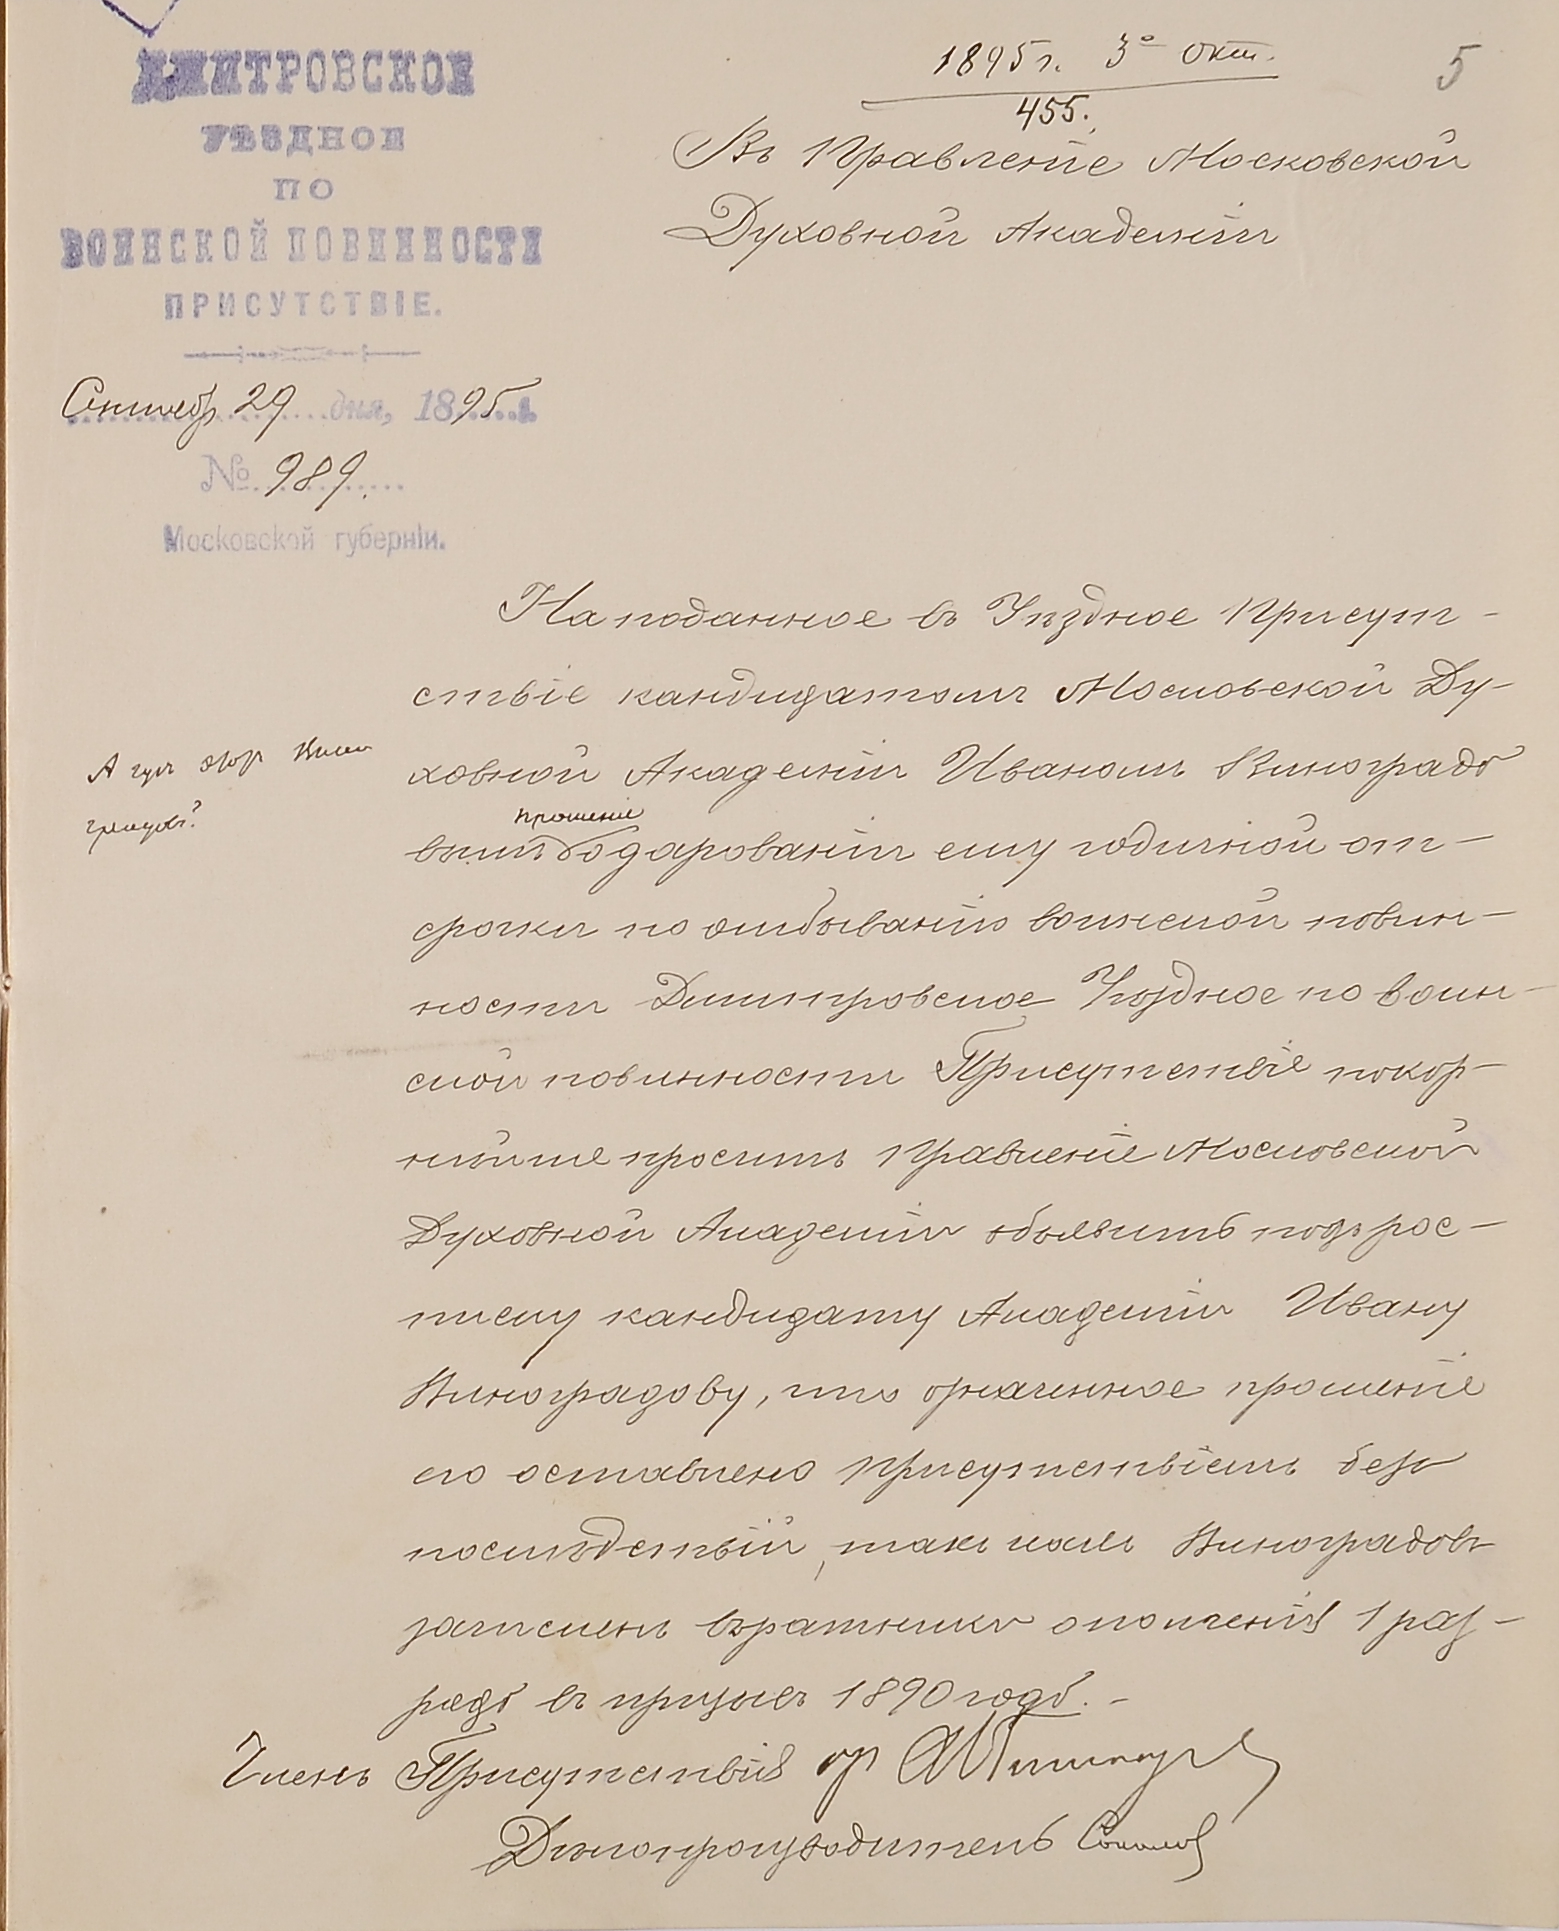 ДМИТРОВСКОЕ
УѢЗДНОЕ
ПО
ВОИНСКОЙ ПОВИННОСТИ
ПРИСУТСТВІЕ.
Сентябр 29 дня, 1895 г.
№ 989.
Московской губерніи.
1895 г. 3го Окт.
455.
5
Въ Правленіе Московской
Духовной Академіи
На поданное въ Уѣздное Присут-
ствіе кандидатомъ Московской Ду-
ховной Академіи Иваномъ Виноградо
вымъ прошеніе о дарованіи ему годичной от-
срочки по отбыванію воинской повин-
ности Дмитровское Уѣздное по воин-
ской повинности Присутствіе покор-
нѣйше проситъ Правленіе Московской
Духовной Академіи объявить подъ рос-
писку кандидату Академіи Ивану
Виноградову, что означенное прошеніе
его оставлено Присутствіемъ безъ
послѣдствій, такъ какъ Виноградовъ
записанъ въ ратники ополченія 1 раз-
ряда въ призывъ 1890 года. -
А гдѣ этотъ Вино
градовъ?
Членъ Присутствія гр
Дѣлопроизводитель Соколов